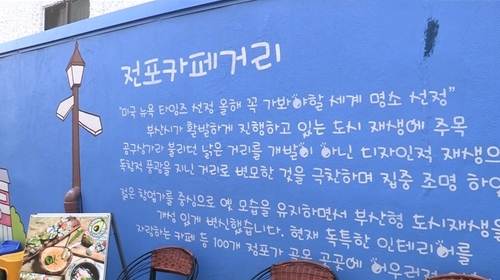 전포카페거리
"미국 뉴욕 타임즈 선정 올해 꼭 가봐야할 세계 명소 선정"
부산시가 활발하게 진행하고 있는 도시 재생에 주목
공구상가라 불리던 낡은 거리를 개발이 아닌 디자인적 재생으
독창적 풍광을 지닌 거리로 변모한 것을 극찬하며 집중 조명 하
젊은 창업가를 중심으로 옛 모습을 유지하면서 부산형 도시재생을
개성 있게 변신했습니다. 현재 독특한 인테리어를
자랑하는 카페 등 100개 점포가 골목 곳곳에 어우러